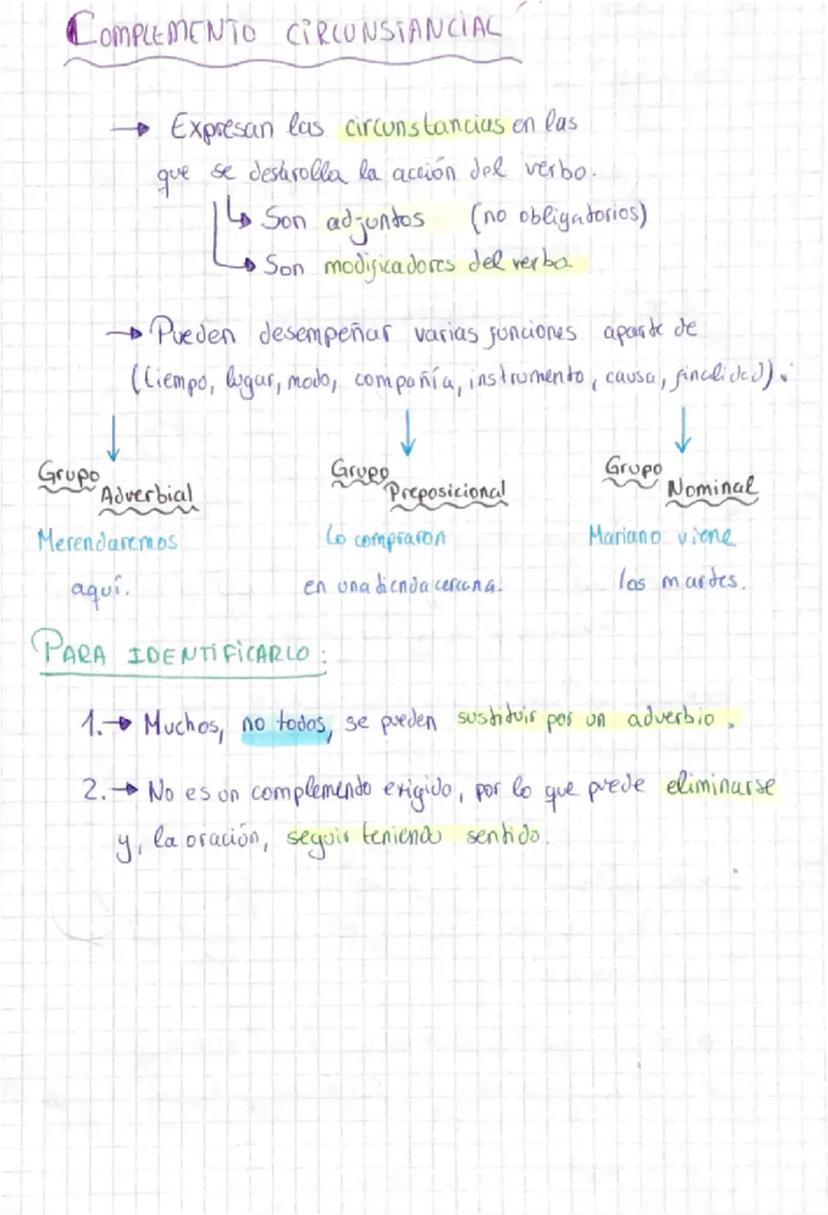 COMPLEMENTO CIRCUNSTANCIAL
→ Expresan las circunstancias en las
que se desarolla la acción del verbo.
↳ Son adjuntos (no obligatorios)
↳ Son modificadores del verbo
→ Pueden desempeñar varias funciones aparte de
(tiempo, lugar, modo, compañía, instrumento, causa, finalidad).
Grupo Adverbial Grupo Preposicional Grupo Nominal
Merendaremos Lo compraron Mariano viene
aquí. en una tienda cercana. los martes.
PARA IDENTIFICARLO:
1.→ Muchos, no todos, se pueden sustituir por un adverbio.
2.→ No es un complemento exigido, por lo que puede eliminarse
y, la oración, seguir teniendo sentido.